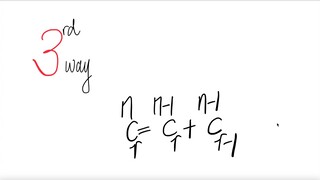 3rd
way
n n-1 n-1
C = C + C
r r r-1